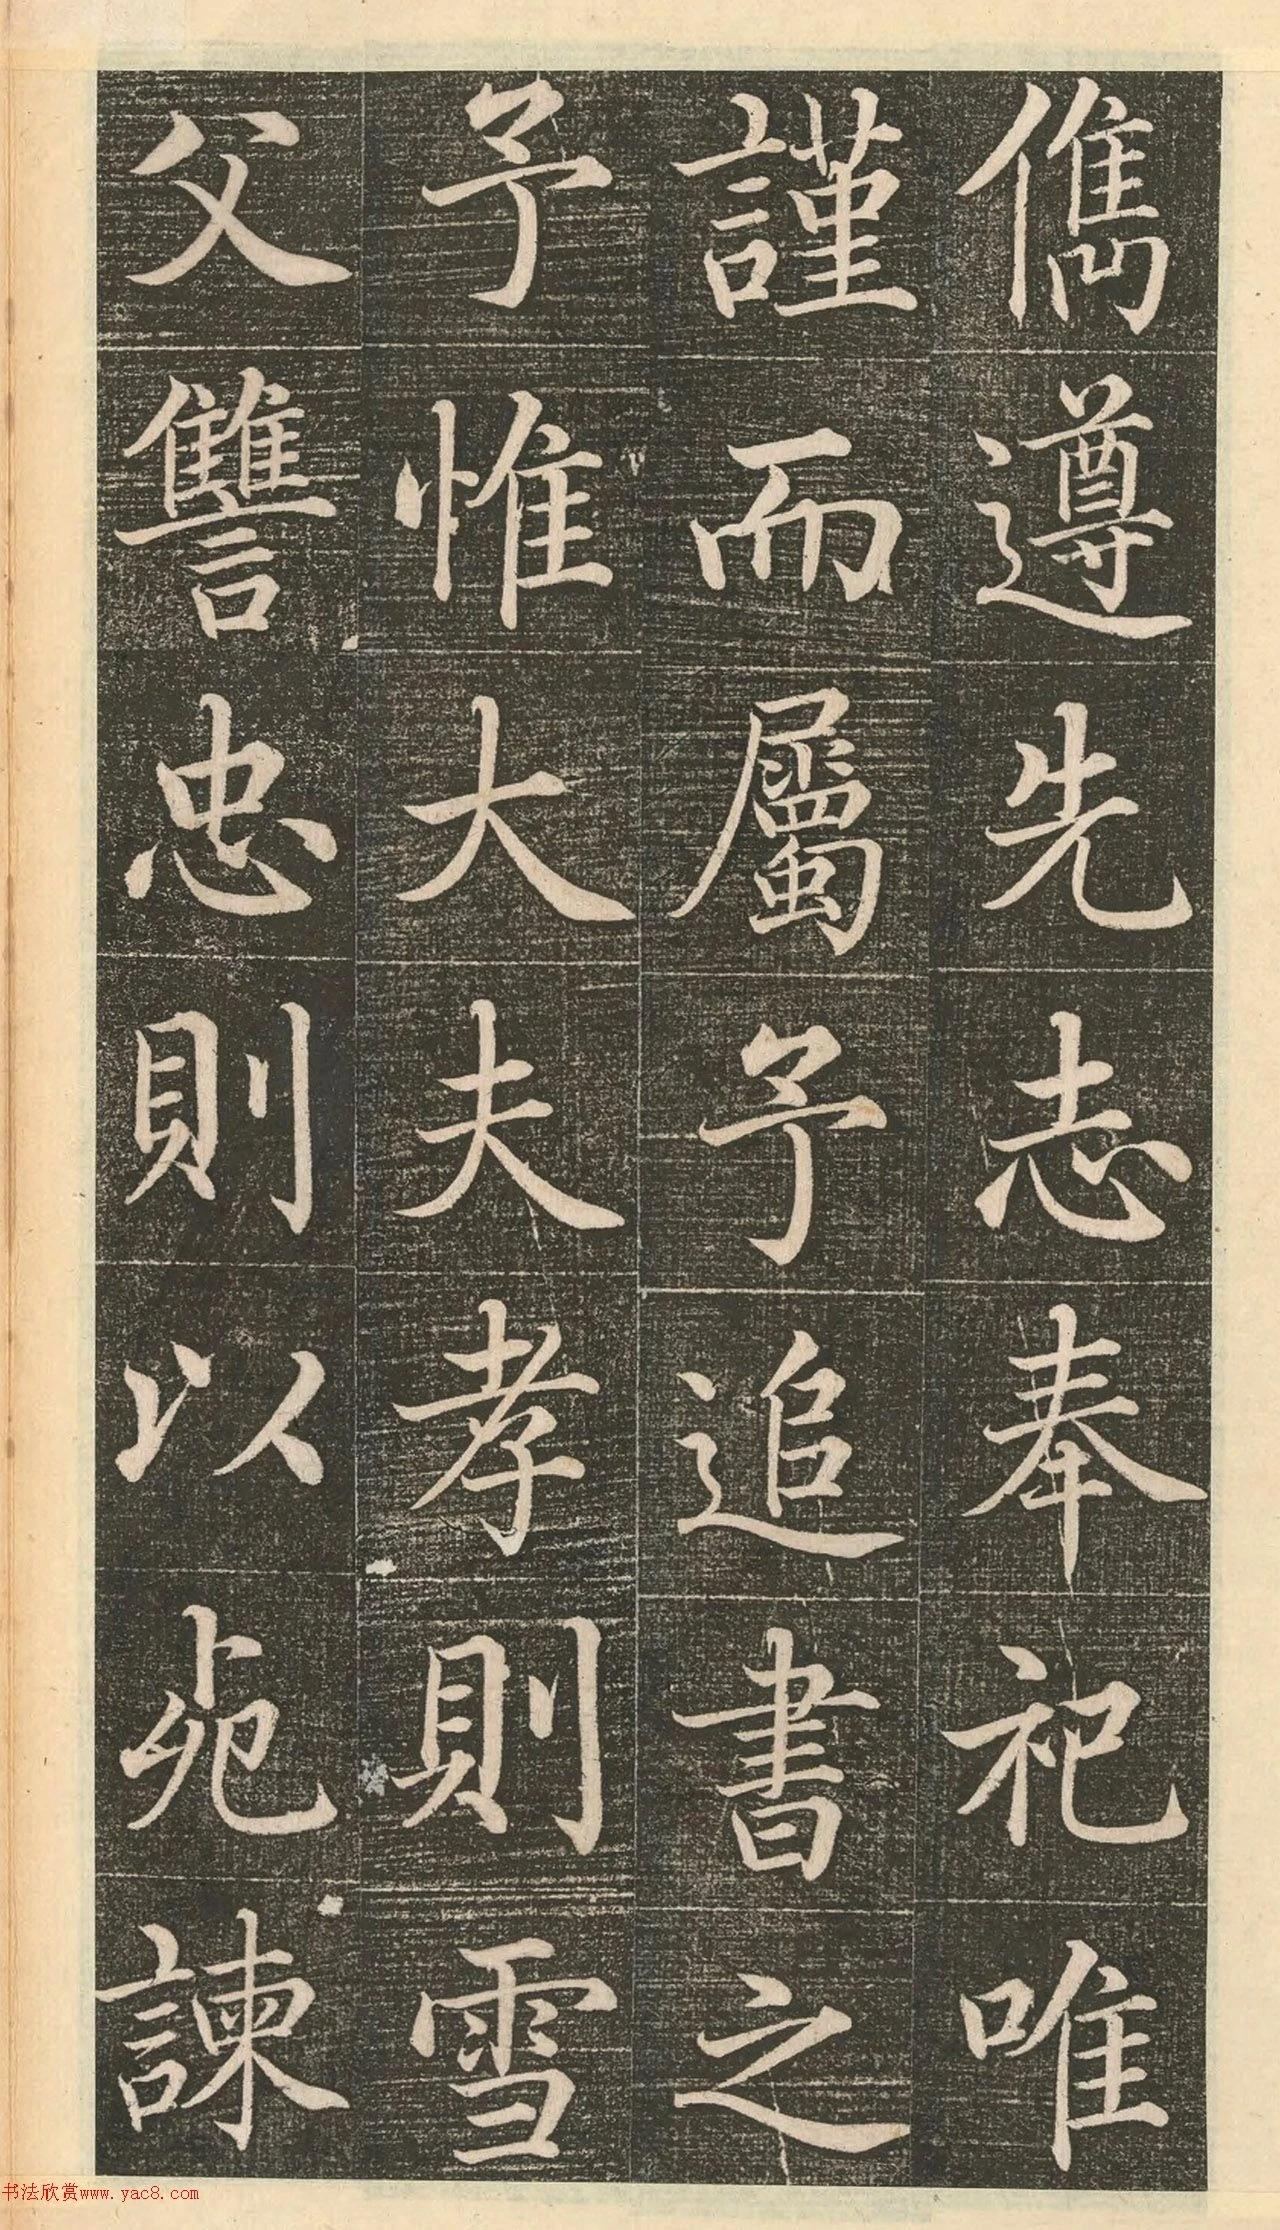 儁遵先志奉祀唯
謹而屬予追書之
予惟大夫孝則雪
父讐忠則以死諫
书法欣赏www.yac8.com